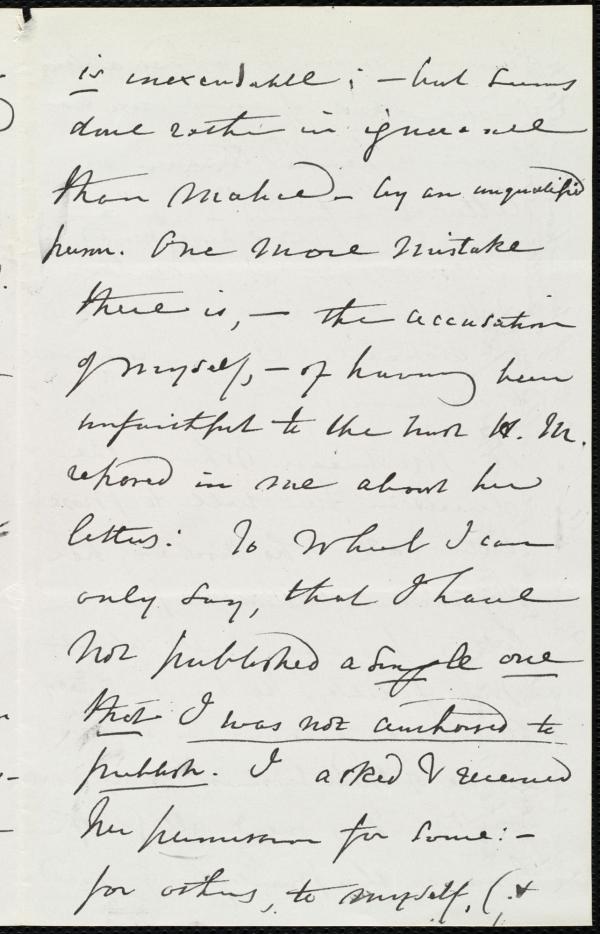 is inexcusable; – but seems
done rather in ignorance
than malice – by an unqualified
person. One more mistake
there is, – the accusation
of myself, – of having been
unfaithful to the trust H. M.
reposed in me about her
letters: To which I can
only say, that I have
not published a single one
that I was not authorised to
publish. I asked & received
her permission for some: –
for others, to myself, (&